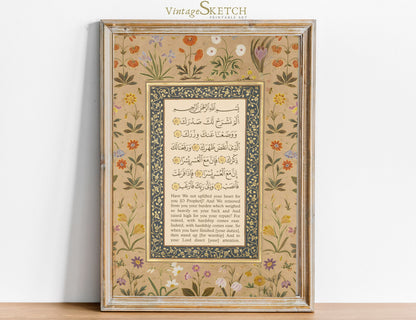 VintageSKETCH
PRINTABLE ART
بِسْمِ اللَّهِ الرَّحْمَٰنِ الرَّحِيمِ
أَلَمْ نَشْرَحْ لَكَ صَدْرَكَ
وَوَضَعْنَا عَنكَ وِزْرَكَ
الَّذِي أَنقَضَ ظَهْرَكَ وَرَفَعْنَا لَكَ
ذِكْرَكَ فَإِنَّ مَعَ الْعُسْرِ يُسْرًا
إِنَّ مَعَ الْعُسْرِ يُسْرًا فَإِذَا فَرَغْتَ
فَانصَبْ وَإِلَىٰ رَبِّكَ فَارْغَب
Have We not uplifted your heart for
you [O Prophet]? And We removed
from you your burden which weighed
so heavily on your back and And
raised high for you your repute? For
indeed, with hardship comes ease.
Indeed, with hardship comes ease. So
when you have finished [your duties],
then stand up [for worship] And to
your Lord direct [your] attention.
VintageSKETCH
PRINTABLE ART